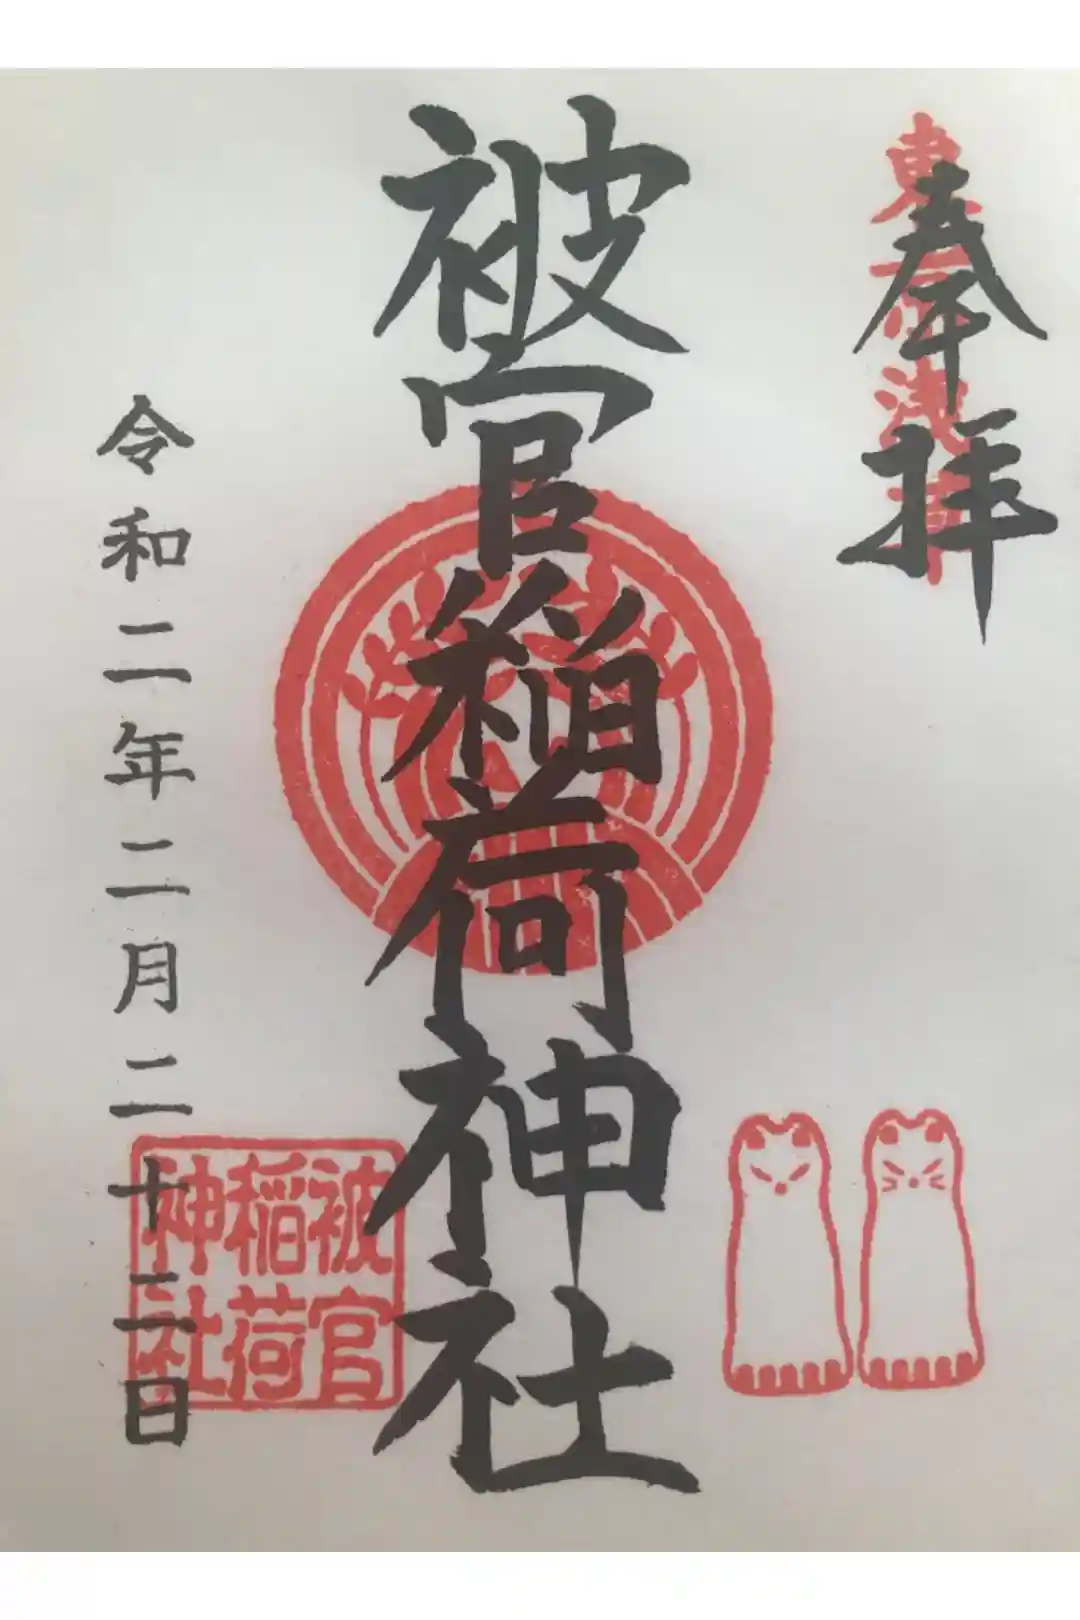 奉拝
東京浅草
被官稲荷神社
令和二年二月二十二日
被官
稲荷
神社